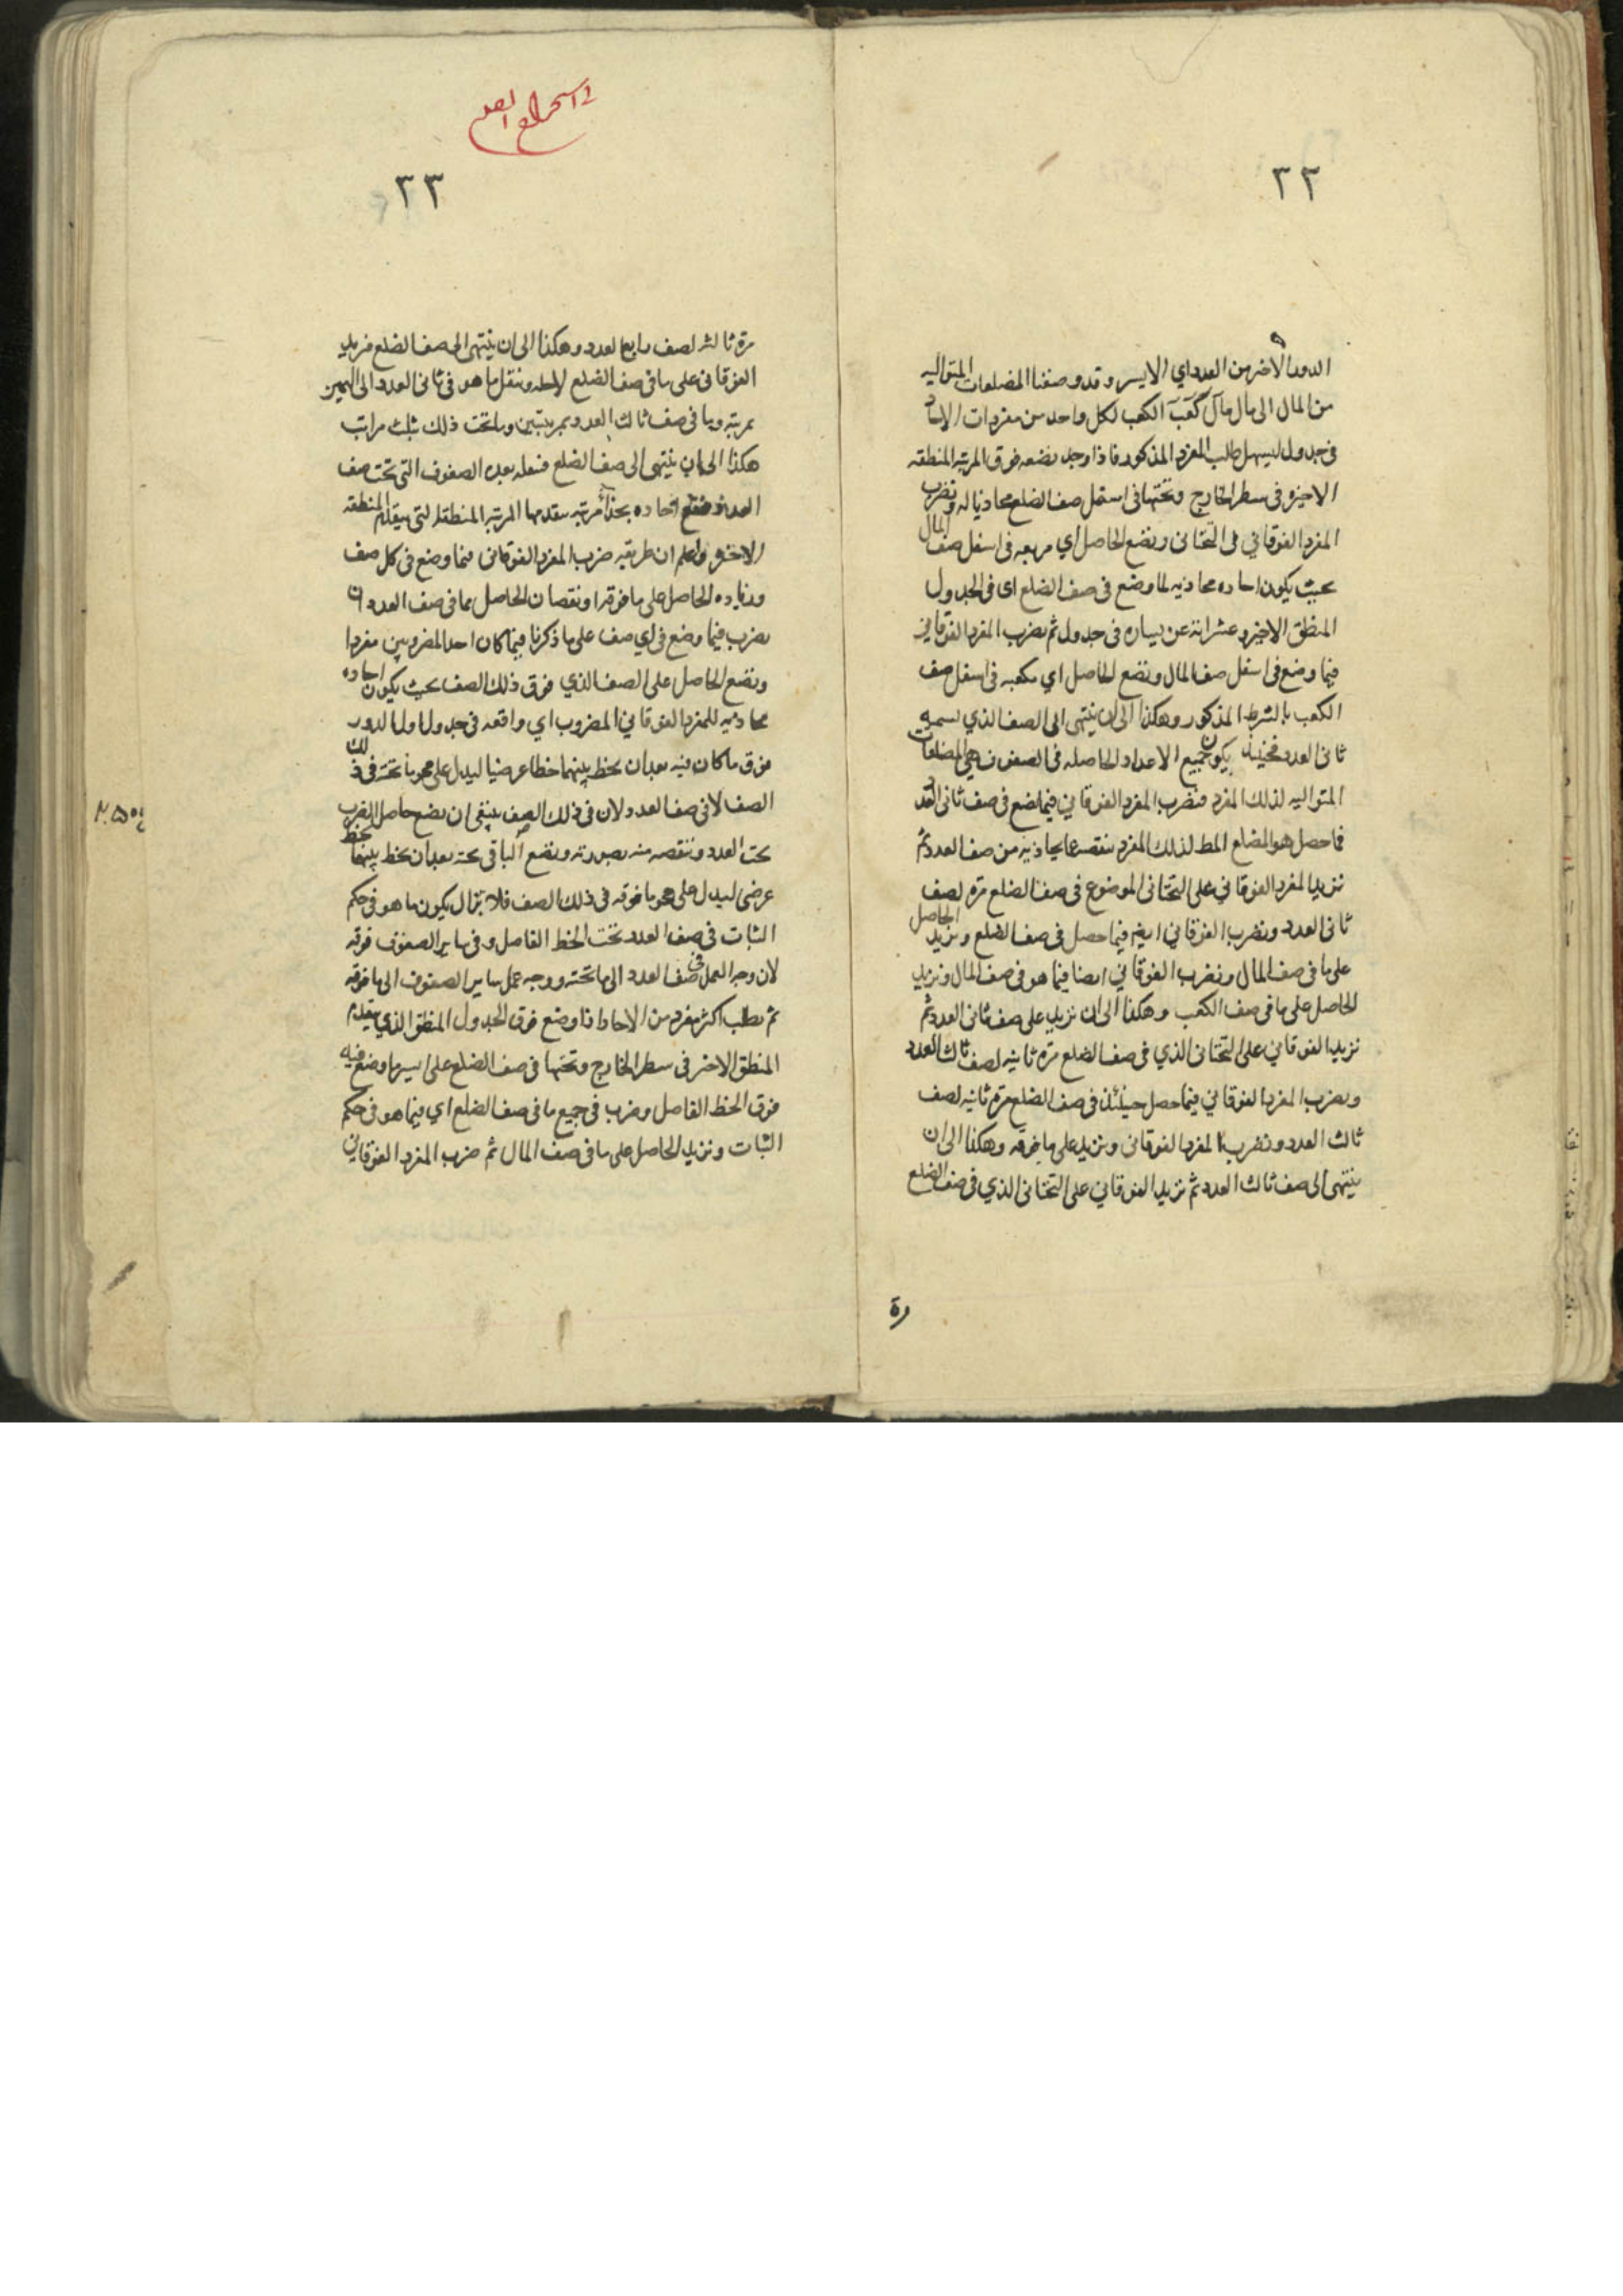 ٢٢
الدور الاخر من العدد اي الايسر وقد وضعنا المضلعات المتواليه
من المال الى مال مال كعب كعب الكعب لكل واحد من مفردات الاحاد
في جدول ليسهل طلب المفرد المذكور فاذا وجد نضعه فوق المرتبه المنطقه
الاخيره في سطر الخارج وتحتها في اسفل صف الضلع محاذيا له ونضرب
المفرد الفوقاني في التحتاني ونضع الحاصل اي مربعه في اسفل صف المال
بحيث يكون احاده محاذيه لما وضع في صف الضلع اى في الجدول
المنطق الاخير وعشراته عن يساره في جدول ثم نضرب المفرد الفوقاني
فيما وضع في اسفل صف المال ونضع الحاصل اي مكعبه في اسفل صف
الكعب بالشرط المذكور وهكذا الى ان ينتهى الى الصف الذي نسميه
ثانى العدد فحينئذ يكون جميع الاعداد الحاصله في الصفوف هي المضلعات
المتواليه لذلك المفرد فنضرب المفرد الفوقاني فيما نضع في صف ثانى العدد
فما حصل هو المضلع المط لذلك المفرد ننقصه عما يحاذيه من صف العدد ثم
نزيد المفرد الفوقاني على التحتانى الموضوع في صف الضلع مرة لصف
ثانى العدد ونضرب الفوقاني ايضا فيما حصل في صف الضلع ونزيد الحاصل
على ما في صف المال ونضرب الفوقاني ايضا فيما هو في صف المال ونزيد
الحاصل على ما في صف الكعب وهكذا الى ان نزيد على صف ثانى العدد ثم
نزيد الفوقاني على التحتانى الذي في صف الضلع مرة ثانيه لصف ثالث العدد
ونضرب المفرد الفوقاني فيما حصل حينئذ في صف الضلع مرة ثانيه لصف
ثالث العدد ونضرب المفرد الفوقانى ونزيد على ما فوقه وهكذا الى ان
ينتهى الى صف ثالث العدد ثم نزيد الفوقاني على التحتانى الذي في صف الضلع
رة
في استخراج الضلع
٢٣
مرة ثالثه لصف رابع العدد وهكذا الى ان ينتهى الى صف الضلع فنزيد
الفوقانى على ما في صف الضلع لاجله وننقل ما هو في ثانى العدد الى اليمين
بمرتبه وما في صف ثالث العدد بمرتبتين وما تحت ذلك بثلث مراتب
هكذا الى ان ينتهى الى صف الضلع فننقله بعده الصفوف التى تحت صف
العدد فتقع احاده بحذاء مرتبه يتقدمها المرتبه المنطقه التى يتقدم المنطقه
الاخيره واعلم ان طريقه ضرب المفرد الفوقانى فيما وضع في كل صف
وزياده الحاصل على ما فوقه او نقصان الحاصل عما في صف العدد ان
نضرب فيما وضع في اي صف على ما ذكرنا فيما كان احد المضروبين مفردا
ونضع الحاصل على الصف الذي فوق ذلك الصف بحيث يكون احاده
محاذيه للمفرد الفوقاني المضروب اي واقعه في جدول اول الدور
فوق ما كان فيه بعد ان نخط بينهما خطا عرضيا ليدل على محو ما تحته في ذلك
الصف لا في صف العدد لان في ذلك الصف ينبغى ان نضع حاصل الضرب
تحت العدد وننقصه منه بصورته ونضع الباقى تحته بعد ان نخط بينهما بخط
عرضى ليدل على محو ما فوقه في ذلك الصف فلا يزال يكون ما هو في حكم
الثبات في صف العدد تحت الخط الفاصل وفي ساير الصفوف فوقه
لان وجه العمل في صف العدد الى ما تحته ووجه عمل ساير الصفوف الى ما فوقه
ثم نطلب اكثر مفرد من الاحاد اذا وضع فوق الجدول المنطق الذي يتقدم
المنطق الاخر في سطر الخارج وتحتها في صف الضلع على يسير ما وضع فيه
فوق الخط الفاصل وضرب في جميع ما في صف الضلع اي فيما هو في حكم
الثبات ونزيد الحاصل على ما في صف المال ثم ضرب المفرد الفوقاني